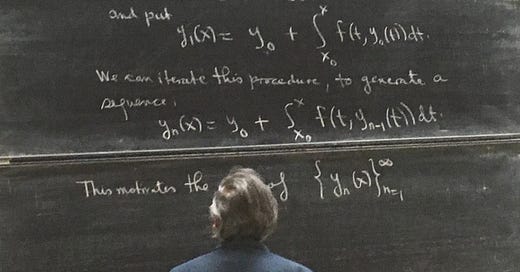 and put
y₁(x) = y₀ + ∫ₓ₀ˣ f(t, y₀(t)) dt.
We can iterate this procedure, to generate a
sequence,
yₙ(x) = y₀ + ∫ₓ₀ˣ f(t, yₙ₋₁(t)) dt.
This motivates the of {yₙ(x)}ₙ₌₁^∞